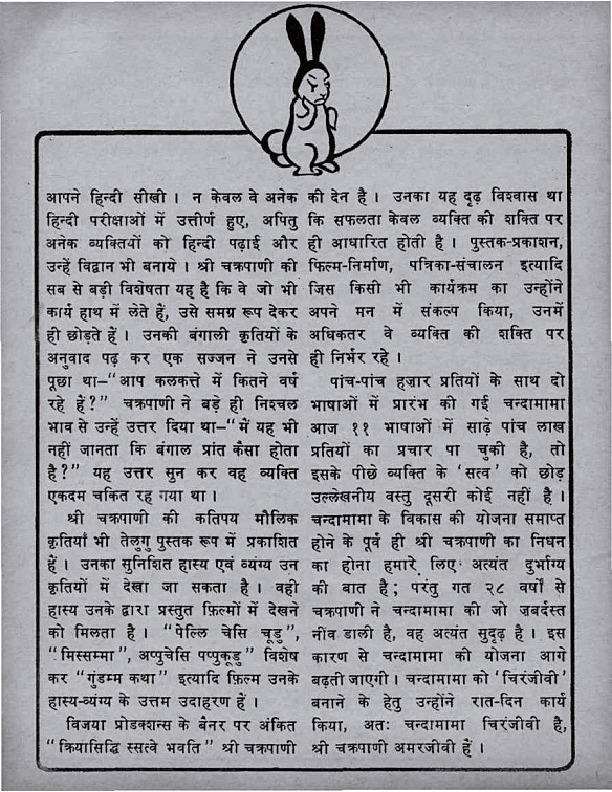 आपने हिन्दी सीखी । न केवल वे अनेक
हिन्दी परीक्षाओं में उत्तीर्ण हुए, अपितु
अनेक व्यक्तियों को हिन्दी पढ़ाई और
उन्हें विद्वान भी बनाये । श्री चक्रपाणी की
सब से बड़ी विशेषता यह है कि वे जो भी
कार्य हाथ में लेते हैं, उसे समग्र रूप देकर
ही छोड़ते हैं । उनकी बंगाली कृतियों के
अनुवाद पढ़ कर एक सज्जन ने उनसे
पूछा था–“आप कलकत्ते में कितने वर्ष
रहे हैं?” चक्रपाणी ने बड़े ही निश्चल
भाव से उन्हें उत्तर दिया था–“में यह भी
नहीं जानता कि बंगाल प्रांत कैसा होता
है?” यह उत्तर सुन कर वह व्यक्ति
एकदम चकित रह गया था ।
श्री चक्रपाणी की कतिपय मौलिक
कृतियाँ भी तेलुगु पुस्तक रूप में प्रकाशित
हैं । उनका सुनिशित हास्य एवं व्यंग्य उन
कृतियों में देखा जा सकता है । वही
हास्य उनके द्वारा प्रस्तुत फ़िल्मों में देखने
को मिलता है । “पेल्लि चेसि चूडु”,
“मिस्सम्मा”, अप्पुचेसि पप्पुकूडु” विशेष
कर “गुंडम्म कथा” इत्यादि फ़िल्म उनके
हास्य-व्यंग्य के उत्तम उदाहरण हैं ।
विजया प्रोडक्शन्स के बैनर पर अंकित
“क्रियासिद्धि स्सत्वे भवति” श्री चक्रपाणी
की देन है । उनका यह दृढ़ विश्वास था
कि सफलता केवल व्यक्ति की शक्ति पर
ही आधारित होती है । पुस्तक-प्रकाशन,
फिल्म-निर्माण, पत्रिका-संचालन इत्यादि
जिस किसी भी कार्यक्रम का उन्होंने
अपने मन में संकल्प किया, उनमें
अधिकतर वे व्यक्ति की शक्ति पर
ही निर्भर रहे ।
पांच-पांच हज़ार प्रतियों के साथ दो
भाषाओं में प्रारंभ की गई चन्दामामा
आज ११ भाषाओं में साढ़े पांच लाख
प्रतियों का प्रचार पा चुकी है, तो
इसके पीछे व्यक्ति के ‘सत्व’ को छोड़
उल्लेखनीय वस्तु दूसरी कोई नहीं है ।
चन्दामामा के विकास की योजना समाप्त
होने के पूर्व ही श्री चक्रपाणी का निधन
का होना हमारे लिए अत्यंत दुर्भाग्य
की बात है ; परंतु गत २८ वर्षों से
चक्रपाणी ने चन्दामामा की जो ज़बर्दस्त
नींव डाली है, वह अत्यंत सुदृढ़ है । इस
कारण से चन्दामामा की योजना आगे
बढ़ती जाएगी । चन्दामामा को ‘चिरंजीवी’
बनाने के हेतु उन्होंने रात-दिन कार्य
किया, अतः चन्दामामा चिरंजीवी है,
श्री चक्रपाणी अमरजीवी हैं ।